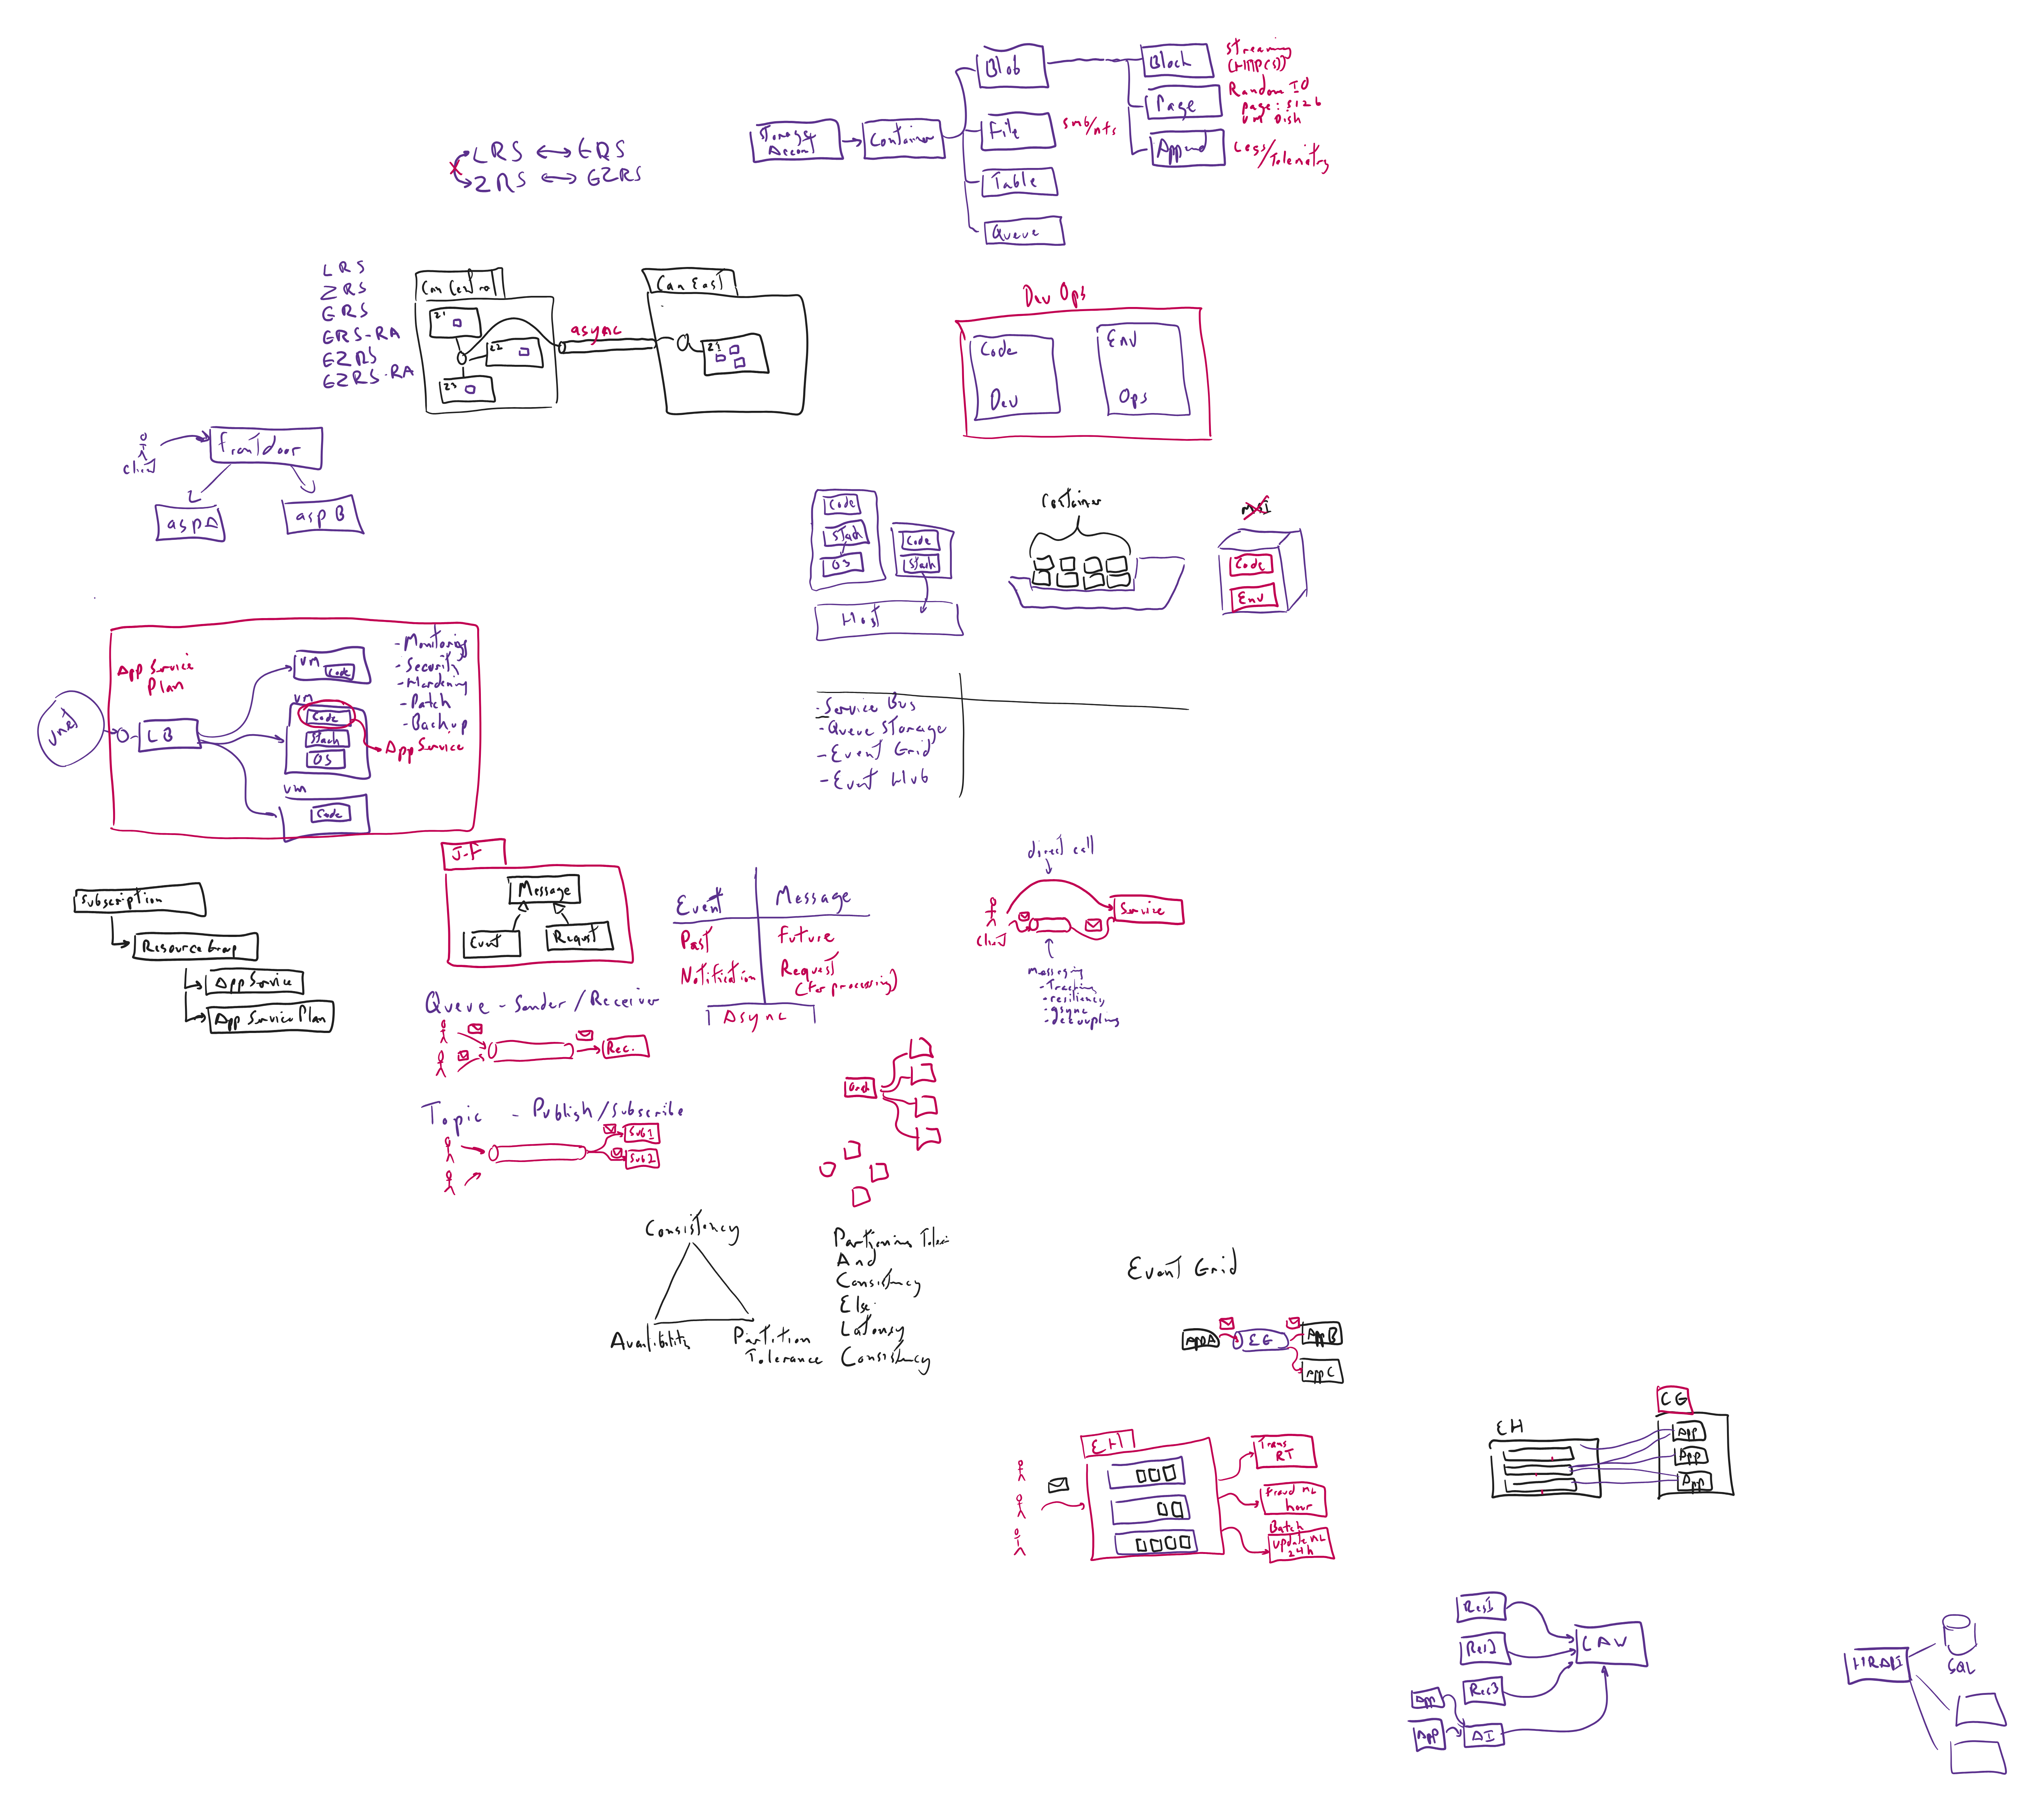 Blob
Block
Streaming
(HTTP(S))
Page
Random IO
page: 512b
VM Disk
Storage
Account
Container
File
smb/nfs
Append
Logs/Telemetry
Table
Queue
LRS <-> GRS
X
ZRS <-> GZRS
LRS
ZRS
GRS
GRS-RA
GZRS
GZRS-RA
Can Central
Z1
Z2
Z3
async
Can East
Z1
Dev Ops
Code
Dev
Env
Ops
client
frontdoor
asp A
asp B
Code
Stack
OS
Code
Stack
Host
Container
MSI
Code
Env
App Service
Plan
vnet
LB
VM
Code
VM
Code
Stack
OS
VM
Code
- Monitoring
- Security
- Hardening
- Patch
- Backup
App Service
- Service Bus
- Queue Storage
- Event Grid
- Event Hub
Subscription
Resource Group
App Service
App Service Plan
J-F
Message
Event
Request
Event
Message
Past
Future
Notification
Request
(for processing)
Async
direct call
client
Service
Messaging
- Tracking
- resiliency
- async
- decoupling
Queue - Sender / Receiver
Rec.
Topic - Publish / Subscribe
Sub1
Sub2
Orch
Consistency
Availibility
Partition
Tolerance
And
Consistency
Else
Latency
Consistency
Event Grid
App A
EG
App B
App C
EH
Trans
RT
Fraud ML
hour
Batch
Update ML
24h
EH
CG
App
App
App
Res1
Res2
Res3
LAW
App
App
AI
HRAPI
SQL